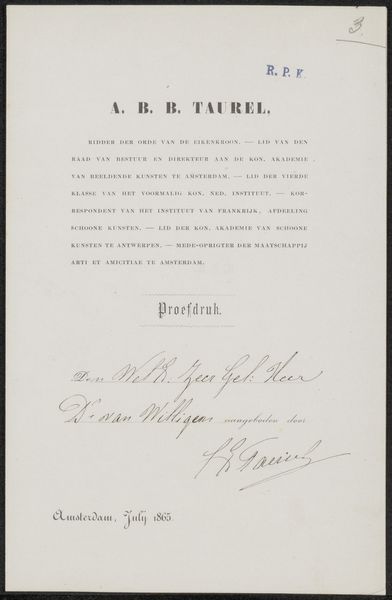 3.
R. P. K.
A. B. B. TAUREL,
RIDDER DER ORDE VAN DE EIKENKROON. — LID VAN DEN
RAAD VAN BESTUUR EN DIREKTEUR AAN DE KON. AKADEMIE
VAN BEELDENDE KUNSTEN TE AMSTERDAM. — LID DER VIERDE
KLASSE VAN HET VOORMALIG KON. NED. INSTITUUT. — KOR-
RESPONDENT VAN HET INSTITUUT VAN FRANKRIJK, AFDEELING
SCHOONE KUNSTEN. — LID DER KON. AKADEMIE VAN SCHOONE
KUNSTEN TE ANTWERPEN. — MEDE-OPRIGTER DER MAATSCHAPPIJ
ARTI ET AMICITIAE TE AMSTERDAM.
Proefdruk.
Den Zeer Gel. Heer
Dr. van Willigen aangeboden door
Taurel
Amsterdam, July 1865.